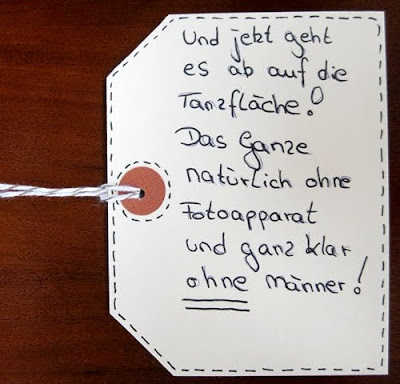 Und jetzt geht
es ab auf die
Tanzfläche!
Das Ganze
natürlich ohne
Fotoapparat
und ganz klar
ohne Männer!